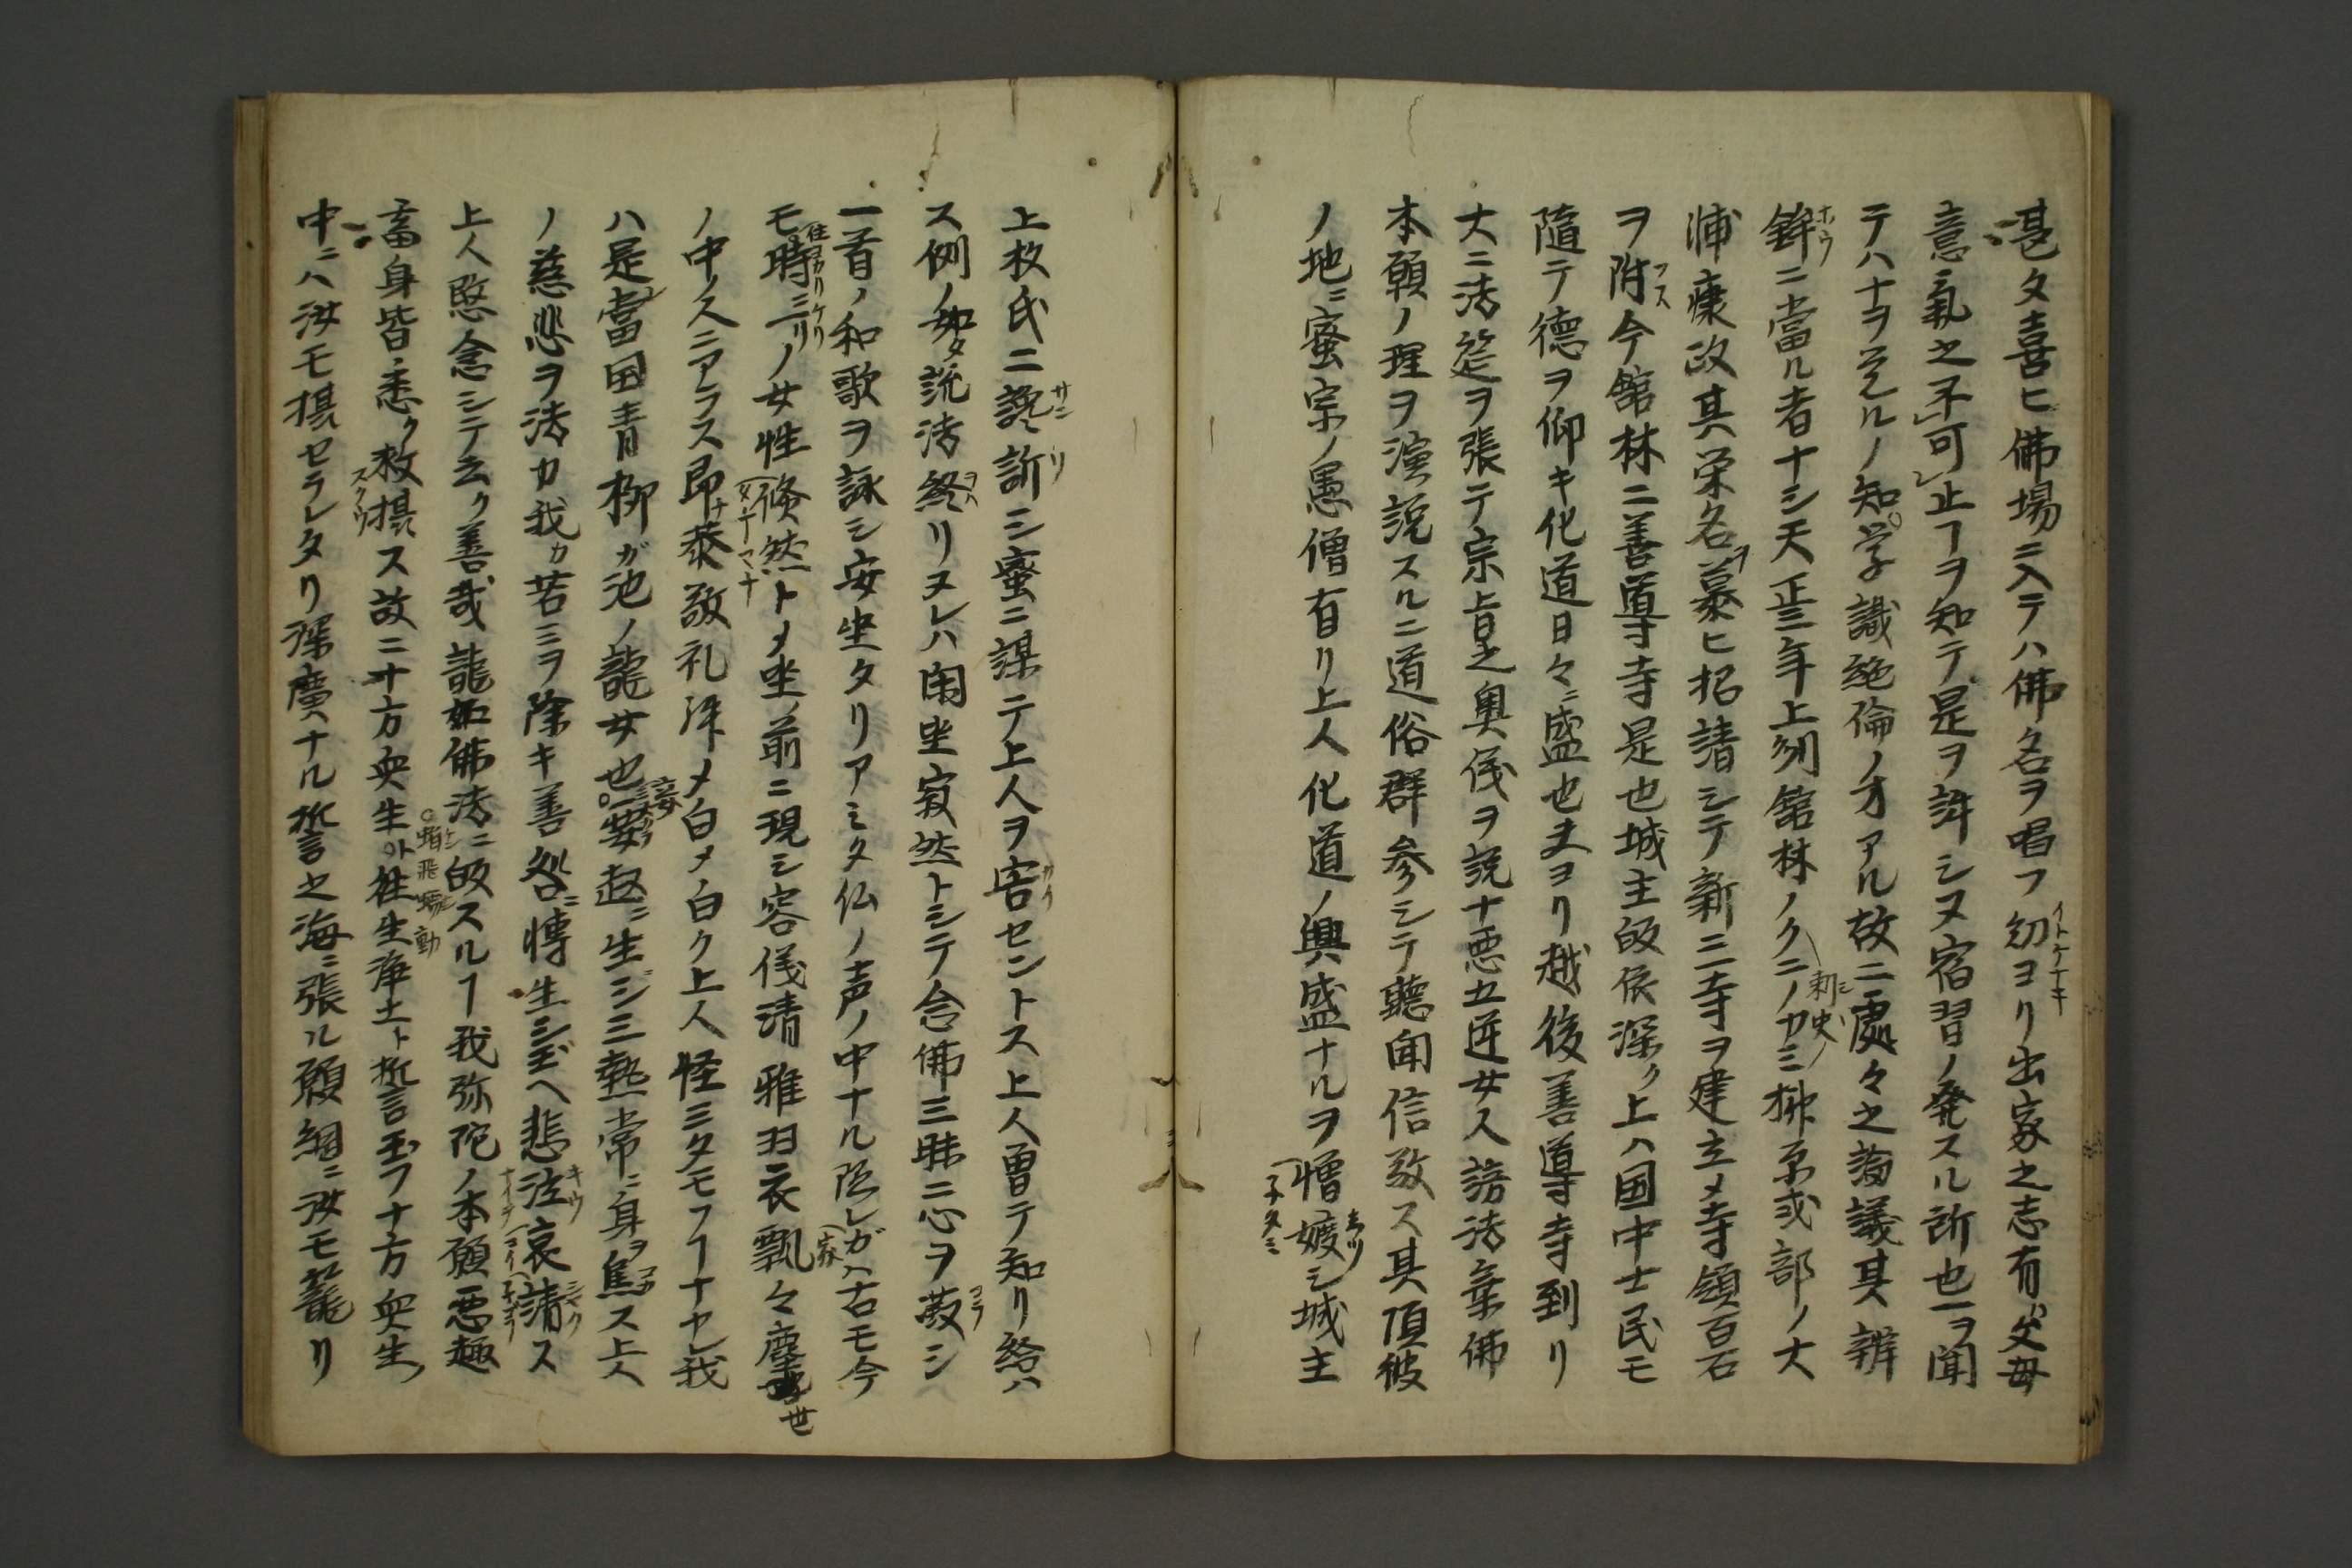 甚タ喜ヒ佛場ニ入テハ佛名ヲ唱フ幼ヨリ出家之志有カ父母
意氣之不可止ヿヲ知テ是ヲ許シヌ宿習ノ発スル所也一ヲ聞
テハ十ヲ覚ルノ知学識絶倫ノ才アル故ニ處々之論議其辨
鉾ニ當ル者ナシ天正三年上刕舘林ノクニノカミ榊原式部ノ大
浦康政其栄名ヲ慕ヒ招請シテ新ニ寺ヲ建立メ寺領百石
ヲ附今舘林ニ善導寺是也城主皈依深ク上ハ国中士民モ
隨テ徳ヲ仰キ化道日々ニ盛也夫ヨリ越後善導寺到リ
大ニ法筵ヲ張テ宗旨之奥儀ヲ説十悪五逆女人謗法棄佛
本願ノ理ヲ演説スルニ道俗群参シテ聽聞信敬ス其頂彼
ノ地ニ蜜宗ノ愚僧有リ上人化道ノ興盛ナルヲ憎嫉シ城主
上枚氏ニ讒訴シ蜜ニ謀テ上人ヲ害セントス上人曽テ知リ給ハ
ス例ノ如ク説法終リヌレハ閑坐寂然トシテ念佛三昧ニ心ヲ凝シ
一首ノ和歌ヲ詠シ安坐タリアミタ仏ノ声ノ中ナル隠レガハ古モ今
モ時ニノ女性倏然トメ坐前ニ現シ容儀清雅羽衣飄々塵世
ノ中ノ人ニアラス即恭敬礼拜メ白メ白ク上人怪ミタモフヿナカレ我
ハ是當国青柳ガ池ノ龍女也妄趣ニ生シ三熱常ニ身ヲ焦ス上人
ノ慈悲ヲ法カ我カ苦ミヲ除キ善処ニ轉生シ玉ヘ悲泣哀請ス
上人愍念シテ云ク善哉龍女佛法ニ皈スルヿ我弥陀ノ本願悪趣
畜身皆悉ク救摂ス故ニ十方衆生ト往生浄土ト誓玉フ十方衆生ノ
中ニハ汝モ摂セラレタリ深廣ナル誓之海ニ張ル願網ニ汝モ籠リ